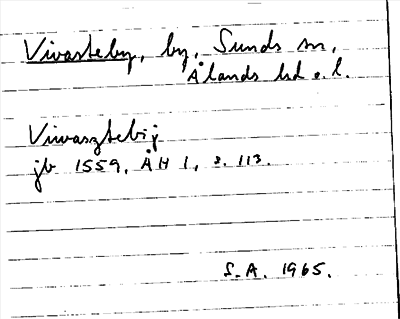 Vivasteby, by, Sunds sn,
Ålands hd o. l.
Vivasztebÿ
jb 1559, ÅH 1, s. 113.
S.A. 1965.